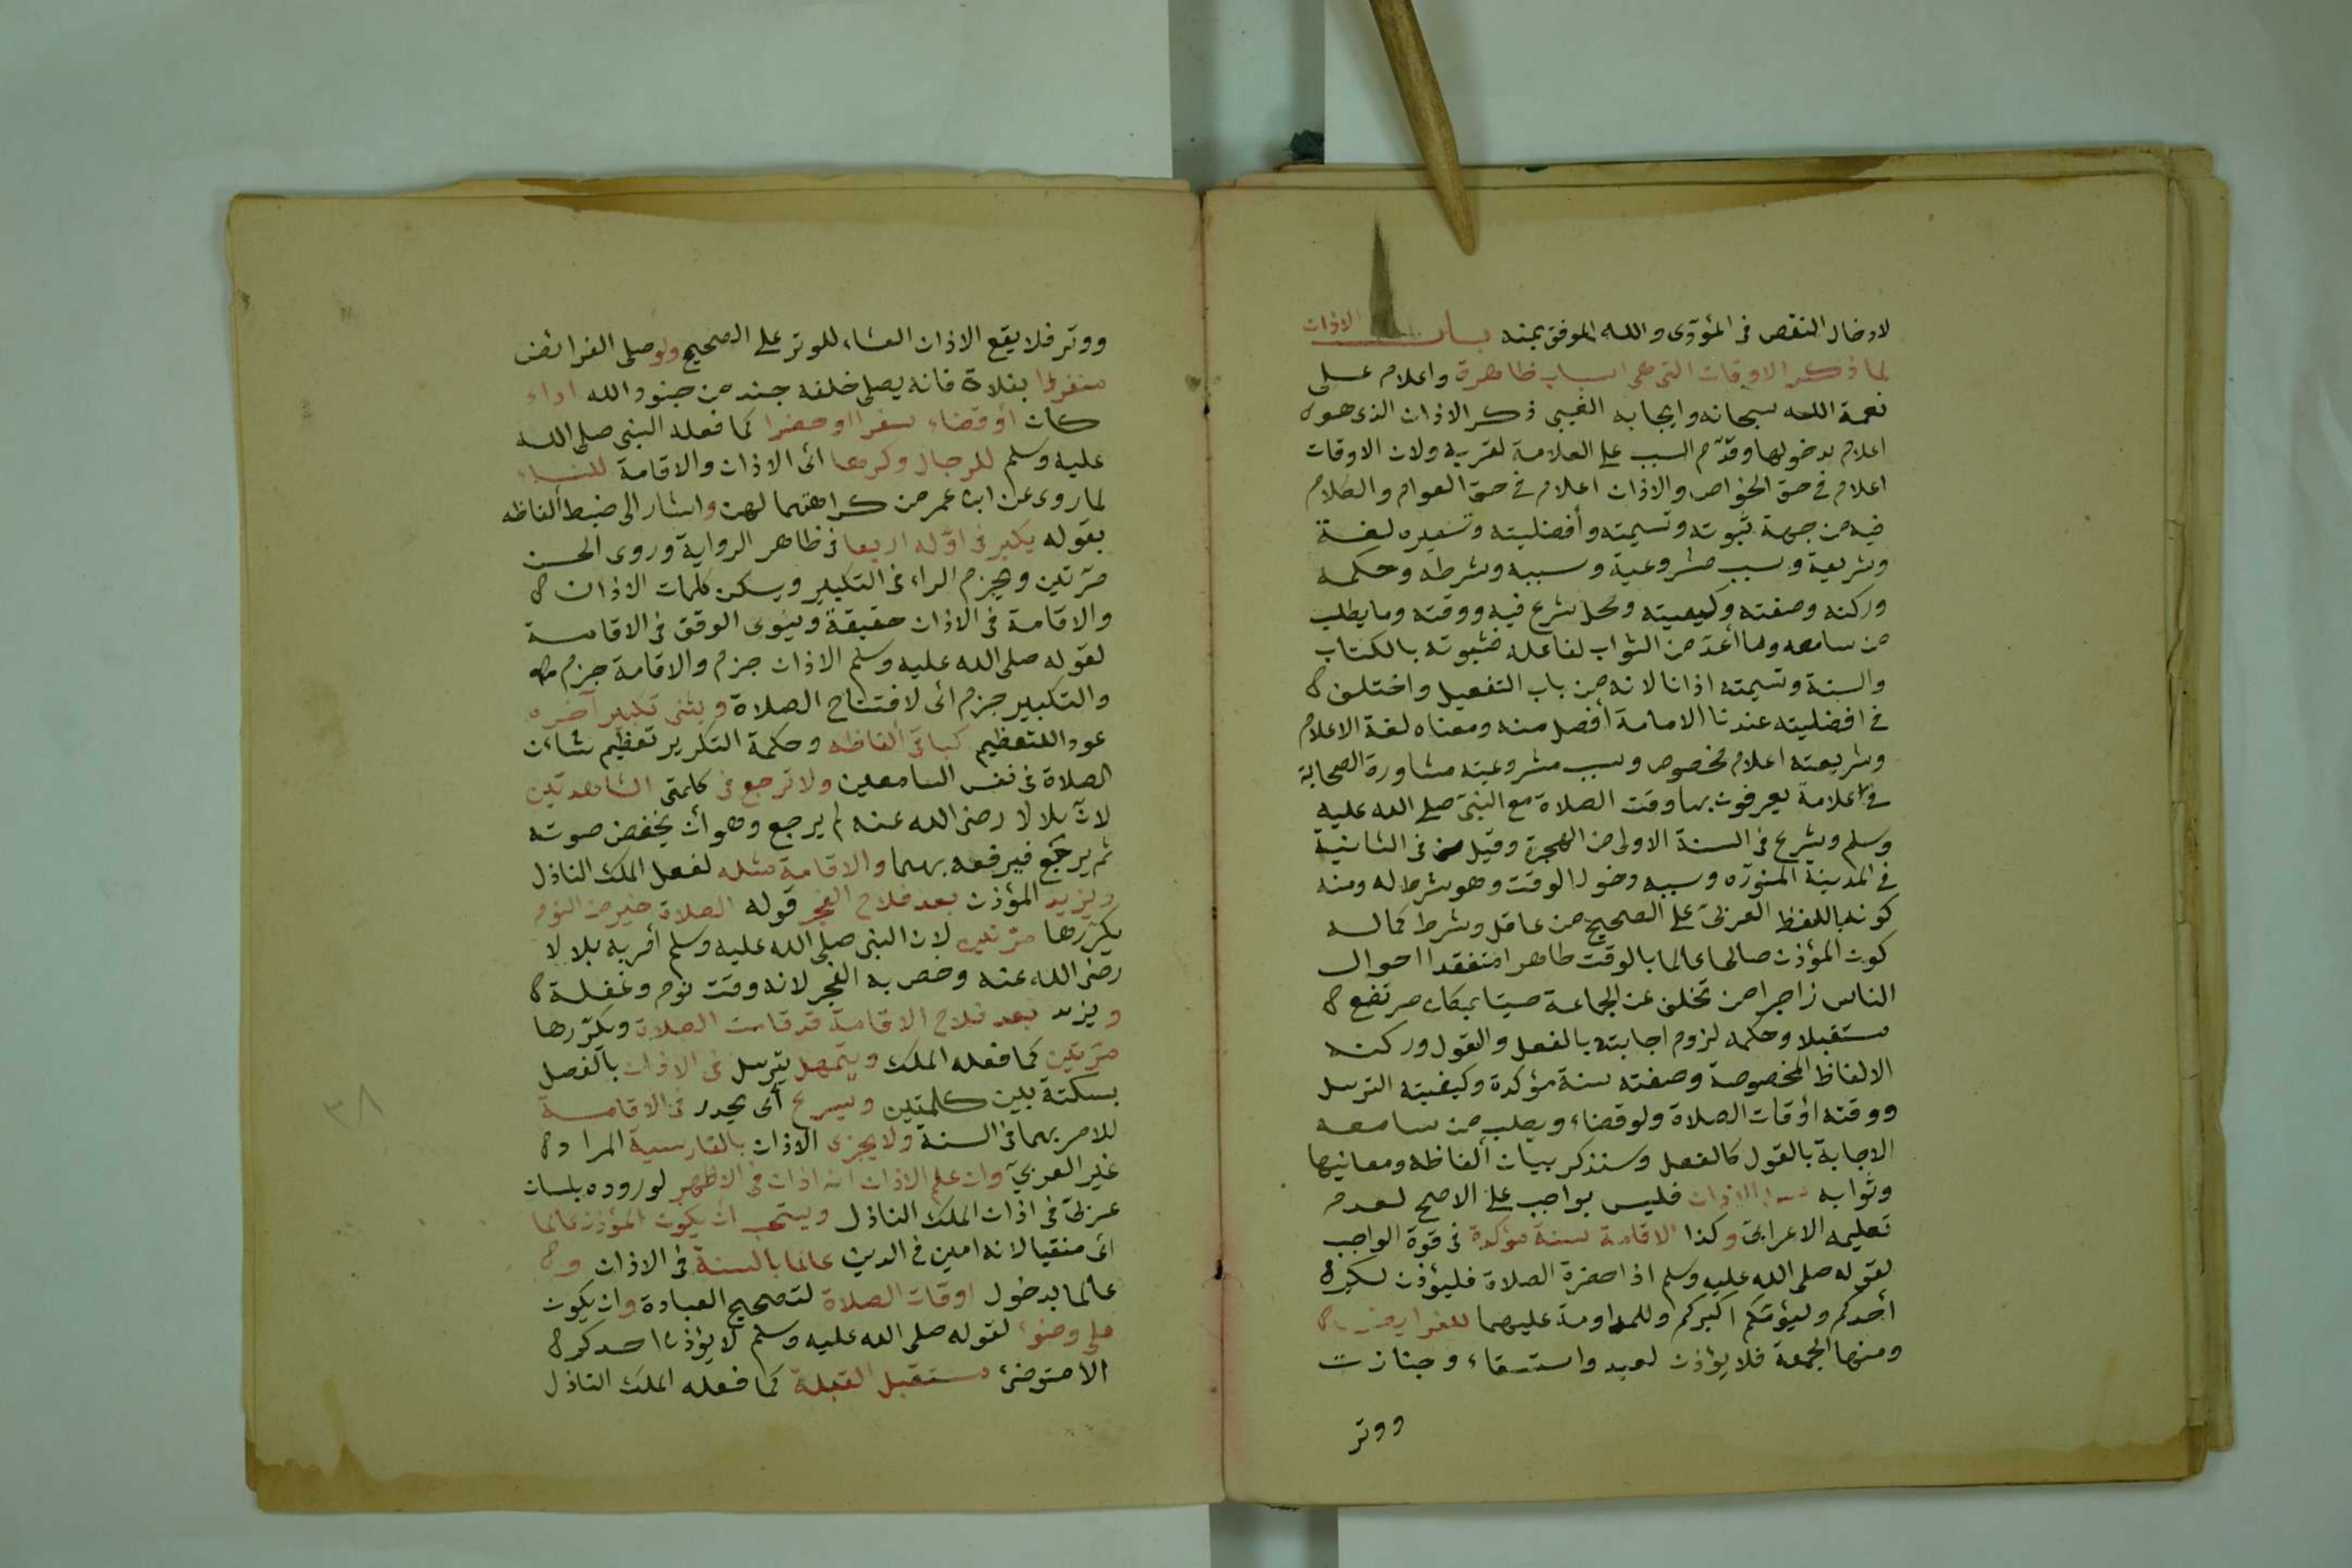 لادخال النقص في المؤدى والله الموفق بمنه باب الاذان
لما ذكر الاوقات التي هي اسباب ظاهرة واعلام على
نعمة الله سبحانه وايجابه الغيبي ذكر الاذان الذي هو
اعلام بدخولها وقدّم السبب على العلامة لقربه ولان الاوقات
اعلام في حق الخواص والاذان اعلام في حق العوام والكلام
فيه من جهة ثبوته وتسميته وأفضليته وتفسيره لغة
وشريعة وسبب مشروعية وسببه وشرطه وحكمه
وركنه وصفته وكيفيته ومحل شرع فيه ووقته وما يطلب
من سامعه وما أعدّ من الثواب لفاعله فثبوته بالكتاب
والسنة وتسميته اذانا لانه من باب التفعيل واختلف
في افضليته عندنا الامامة أفضل منه ومعناه لغة الاعلام
وشريعته اعلام مخصوص وسبب مشروعيته مشاورة الصحابة
في علامة يعرفون بها وقت الصلاة مع النبيّ صلى الله عليه
وسلم وشرع في السنة الاولى من الهجرة وقيل في الثانية
في المدينة المنوّرة وسببه دخول الوقت وهو شرط له ومنه
كونه باللفظ العربيّ على الصحيح من عاقل وشرط كماله
كون المؤذن صالحا عالما بالوقت طاهرا متفقدا احوال
الناس زاجرا من تخلف عن الجماعة صيتا بمكان مرتفع
مستقبلا وحكمه لزوم اجابته بالفعل والقول وركنه
الالفاظ المخصوصة وصفته سنة مؤكدة وكيفيته الترسل
ووقته أوقات الصلاة ولو قضاء ويطلب من سامعه
الاجابة بالقول كالفعل وسنذكر بيان ألفاظه ومعانيها
وثوابه سن الاذان فليس بواجب على الاصح لعدم
تعليمه الاعرابيّ وكذا الاقامة سنة مؤكدة في قوة الواجب
لقوله صلى الله عليه وسلم اذا حضرة الصلاة فليؤذن لكم
أحدكم وليؤمّكم اكبركم وللمداومة عليهما للفرايض
ومنها الجمعة فلا يؤذن لعيد واستسقاء وجنازت
ووتر
ووتر فلا يقع الاذان العشاء للوتر على الصحيح ولو صلى الفرائض
منفردا بفلاة فانه يصلى خلفه جند من جنود الله اداء
كان أو قضاء سفرا او حضرا كما فعله النبي صلى الله
عليه وسلم للرجال وكرها أى الاذان والاقامة للنساء
لما روى عن ابن عمر من كراهتهما لهن واشار الى ضبط ألفاظه
بقوله يكبر في اوّله اربعا في ظاهر الرواية وروى الحسن
مرّتين ويجزم الراء في التكبير ويسكن كلمات الاذان
والاقامة في الاذان حقيقة وينوى الوقف في الاقامة
لقوله صلى الله عليه وسلم الاذان جزم والاقامة جزم
والتكبير جزم أى لافتتاح الصلاة ويثنى تكبير آخره
عودا للتعظيم كباقى ألفاظه وحكمة التكرير تعظيم شأن
الصلاة في نفس السامعين ولا ترجع في كلمتي الشاهدتين
لانّ بلالا رضى الله عنه لم يرجع وهو أن يخفض صوته
ثم يرجع فيرفعه بهما والاقامة مثله لفعل الملك النازل
ويزيد المؤذن بعد فلاح الفجر قوله الصلاة خير من النوم
يكرّرها مرّتين لان النبي صلى الله عليه وسلم أمر به بلالا
رضى الله عنه وخص به الفجر لانه وقت نوم وغفلة
ويزيد بعد فلاح الاقامة قد قامت الصلاة ويكرّرها
مرّتين كما فعله الملك ويتمهل يترسل في الاذان بالفصل
بسكتة بين كلمتين ويسرع أى يحدر في الاقامة
للامر بهما في السنة ولا يجزى الاذان بالفارسية المراد
غير العربيّ وان علم الاذان انه اذان في الاظهر لوروده بلسان
عربيّ في اذان الملك النازل ويستحب أن يكون المؤذن صالحا
أى متقيا لانه امين في الدين عالما بالسنة في الاذان و
عالما بدخول اوقات الصلاة لتصحيح العبادة وان يكون
على وضوء لقوله صلى الله عليه وسلم لا يؤذن احدكم
الا متوضئ مستقبل القبلة كما فعله الملك النازل
٣٨